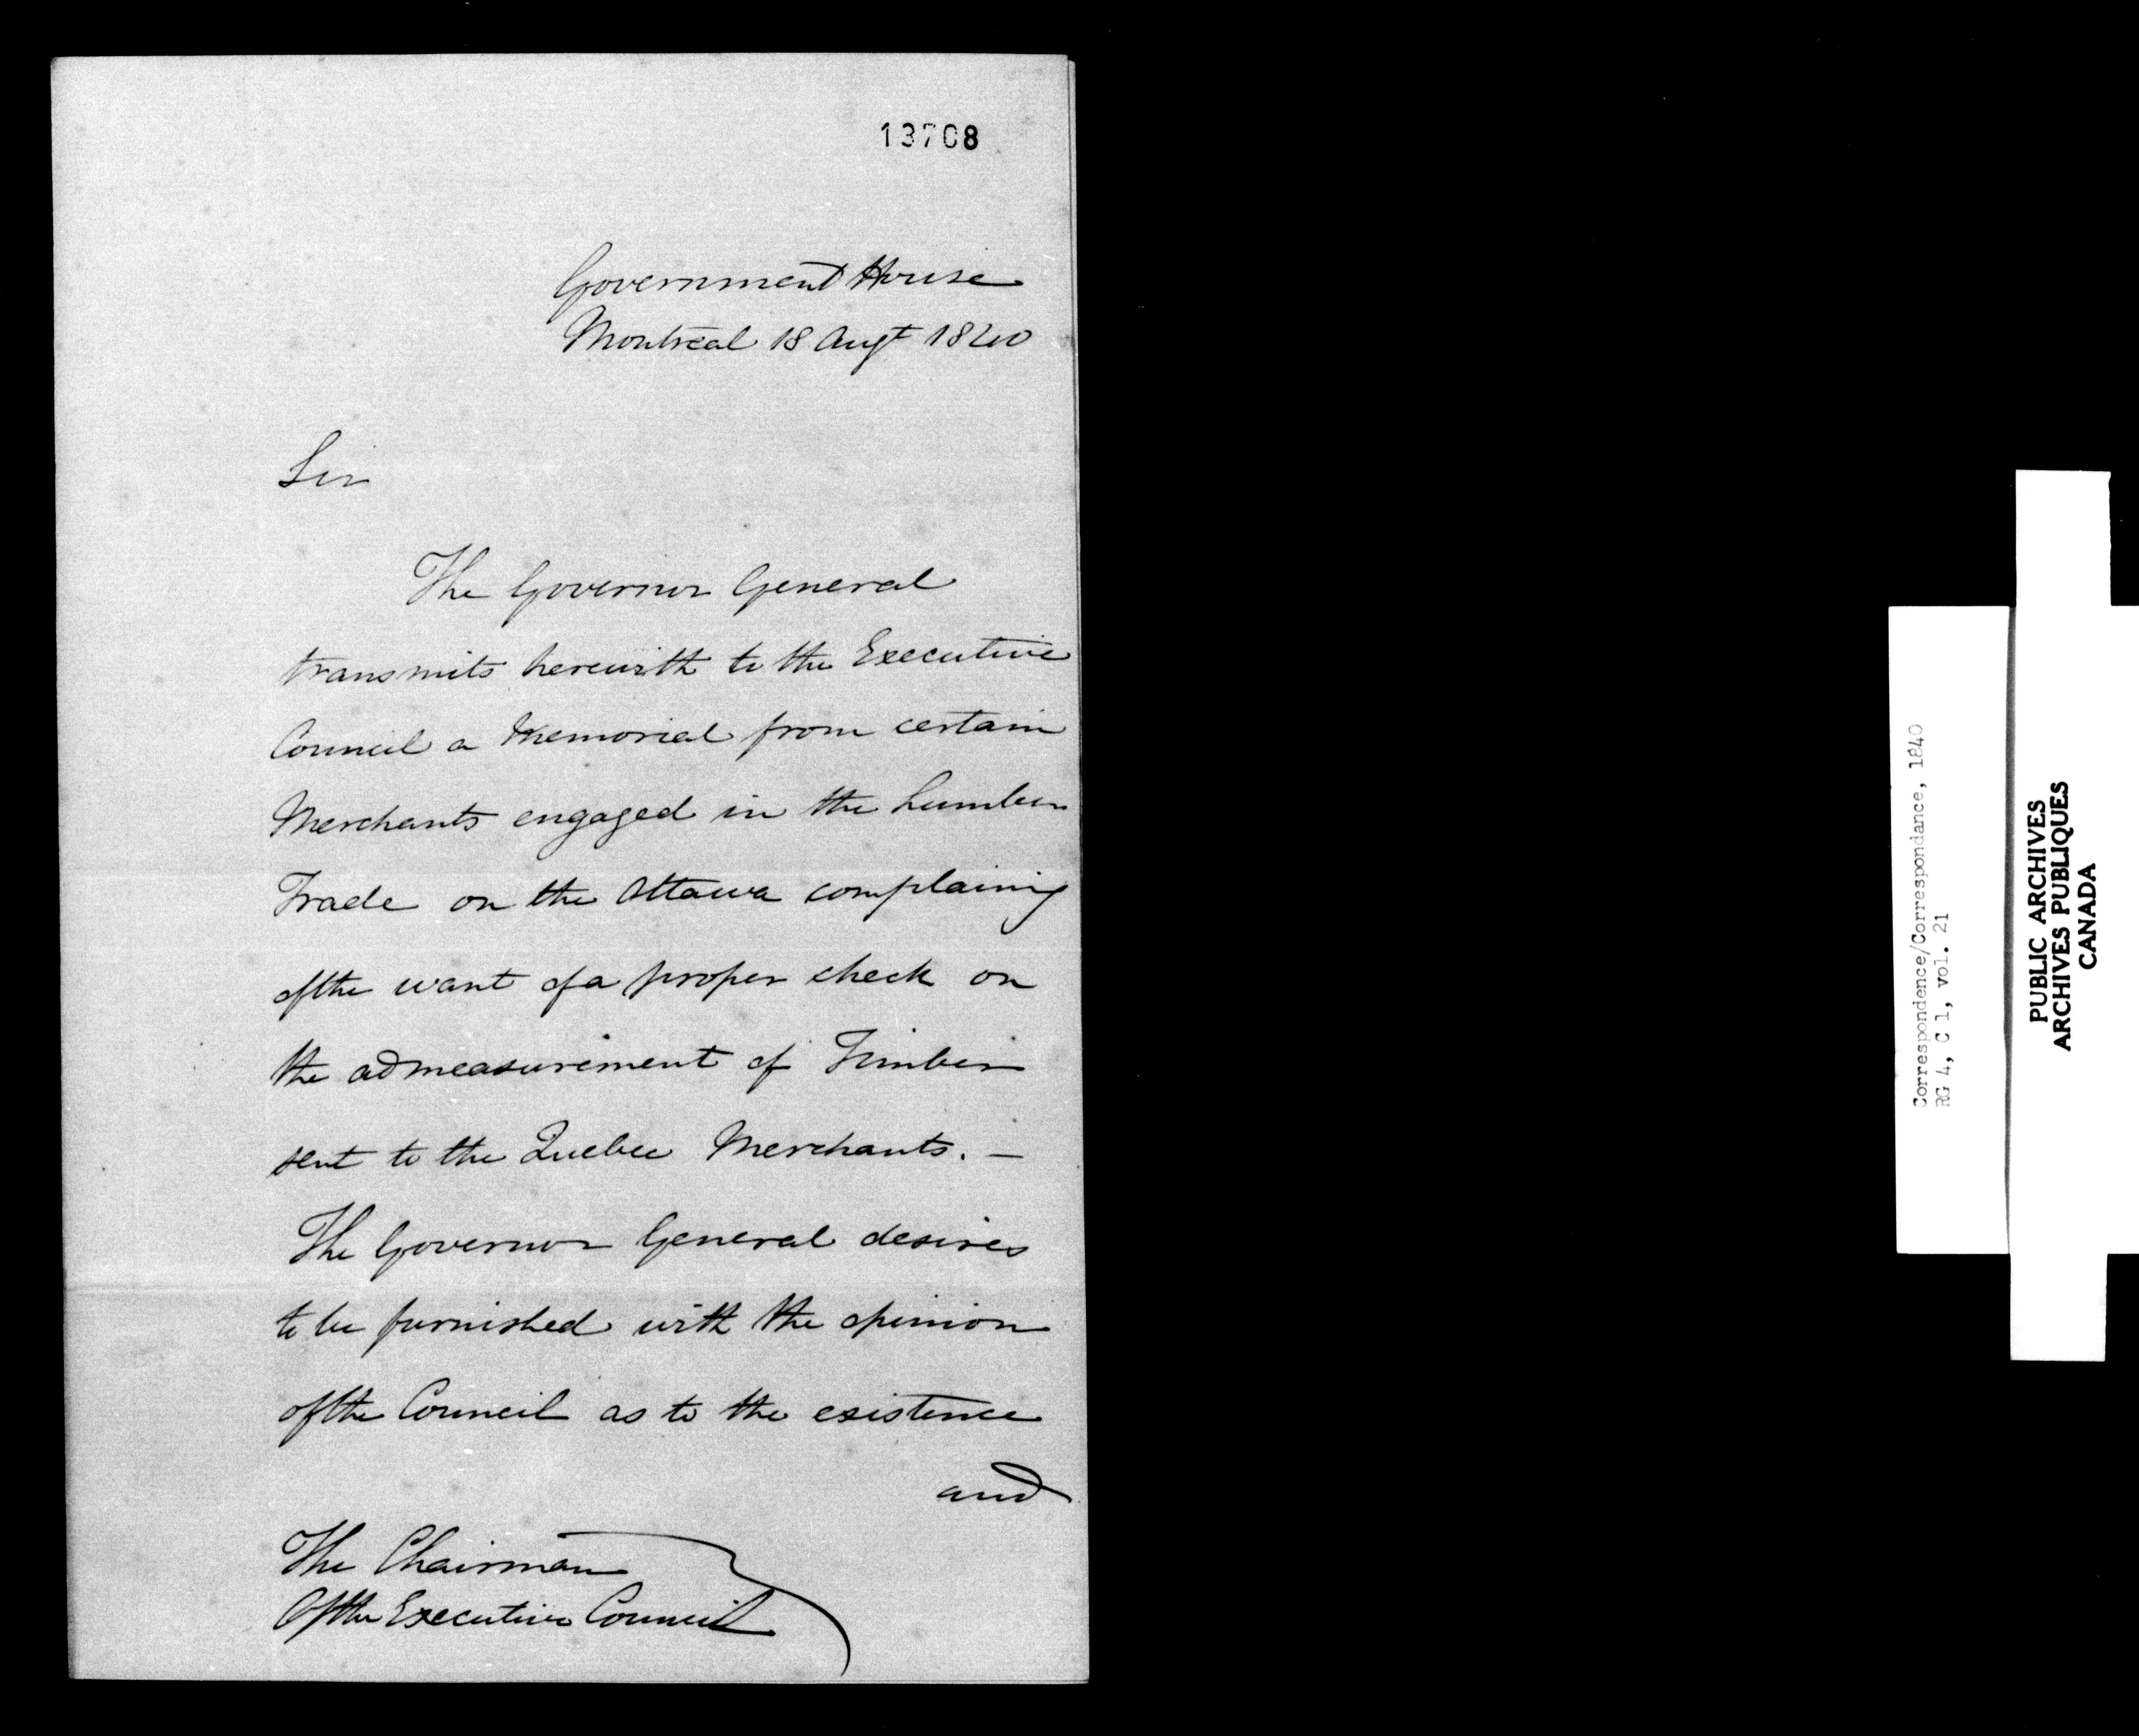 13708
Government House
Montreal 18 Augt 1840
Sir
The Governor General
transmits herewith to the Executive
Council a Memorial from certain
Merchants engaged in the Lumber
Trade on the Ottawa complaining
of the want of a proper check on
the admeasurement of Timber
sent to the Quebec Merchants. —
The Governor General desires
to be furnished with the opinion
of the Council as to the existence
and
The Chairman
Of the Executive Council
Correspondence/Correspondance, 1840
RG 4, C 1, vol. 21
PUBLIC ARCHIVES
ARCHIVES PUBLIQUES
CANADA